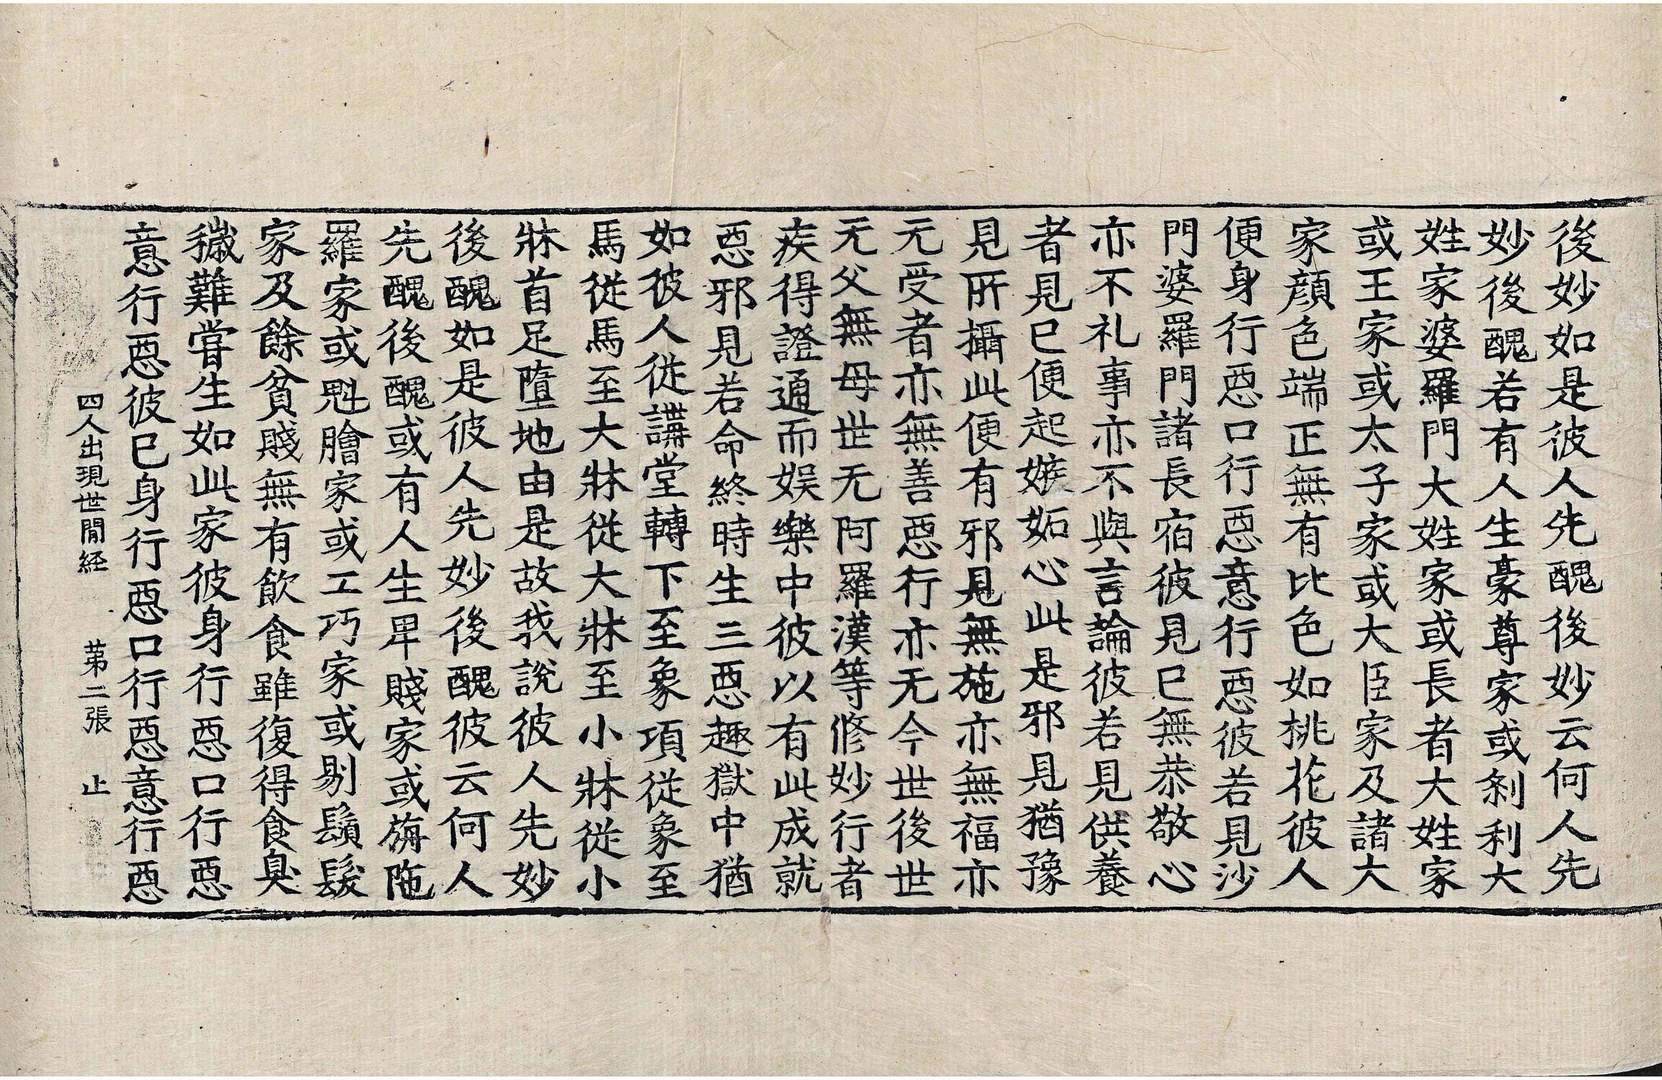 後妙如是彼人先醜後妙云何人先
妙後醜若有人生豪尊家或剎利大
姓家婆羅門大姓家或長者大姓家
或王家或太子家或大臣家及諸大
家顏色端正無有比色如桃花彼人
便身行惡口行惡意行惡彼若見沙
門婆羅門諸長宿彼見已無恭敬心
亦不礼事亦不與言論彼若見供養
者見已便起嫉妬心此是邪見猶豫
見所攝此便有邪見無施亦無福亦
无受者亦無善惡行亦无今世後世
无父無母世无阿羅漢等修妙行者
疾得證通而娱樂中彼以有此成就
惡邪見若命終時生三惡趣獄中猶
如彼人從講堂轉下至象項從象至
馬從馬至大牀從大牀至小牀從小
牀首足墮地由是故我說彼人先妙
後醜如是彼人先妙後醜彼云何人
先醜後醜或有人生卑賤家或旃陁
羅家或魁膾家或工巧家或剔鬚髮
家及餘貧賤無有飲食雖復得食臭
穢難嘗生如此家彼身行惡口行惡
意行惡彼已身行惡口行惡意行惡
四人出現世間経 第二張 止